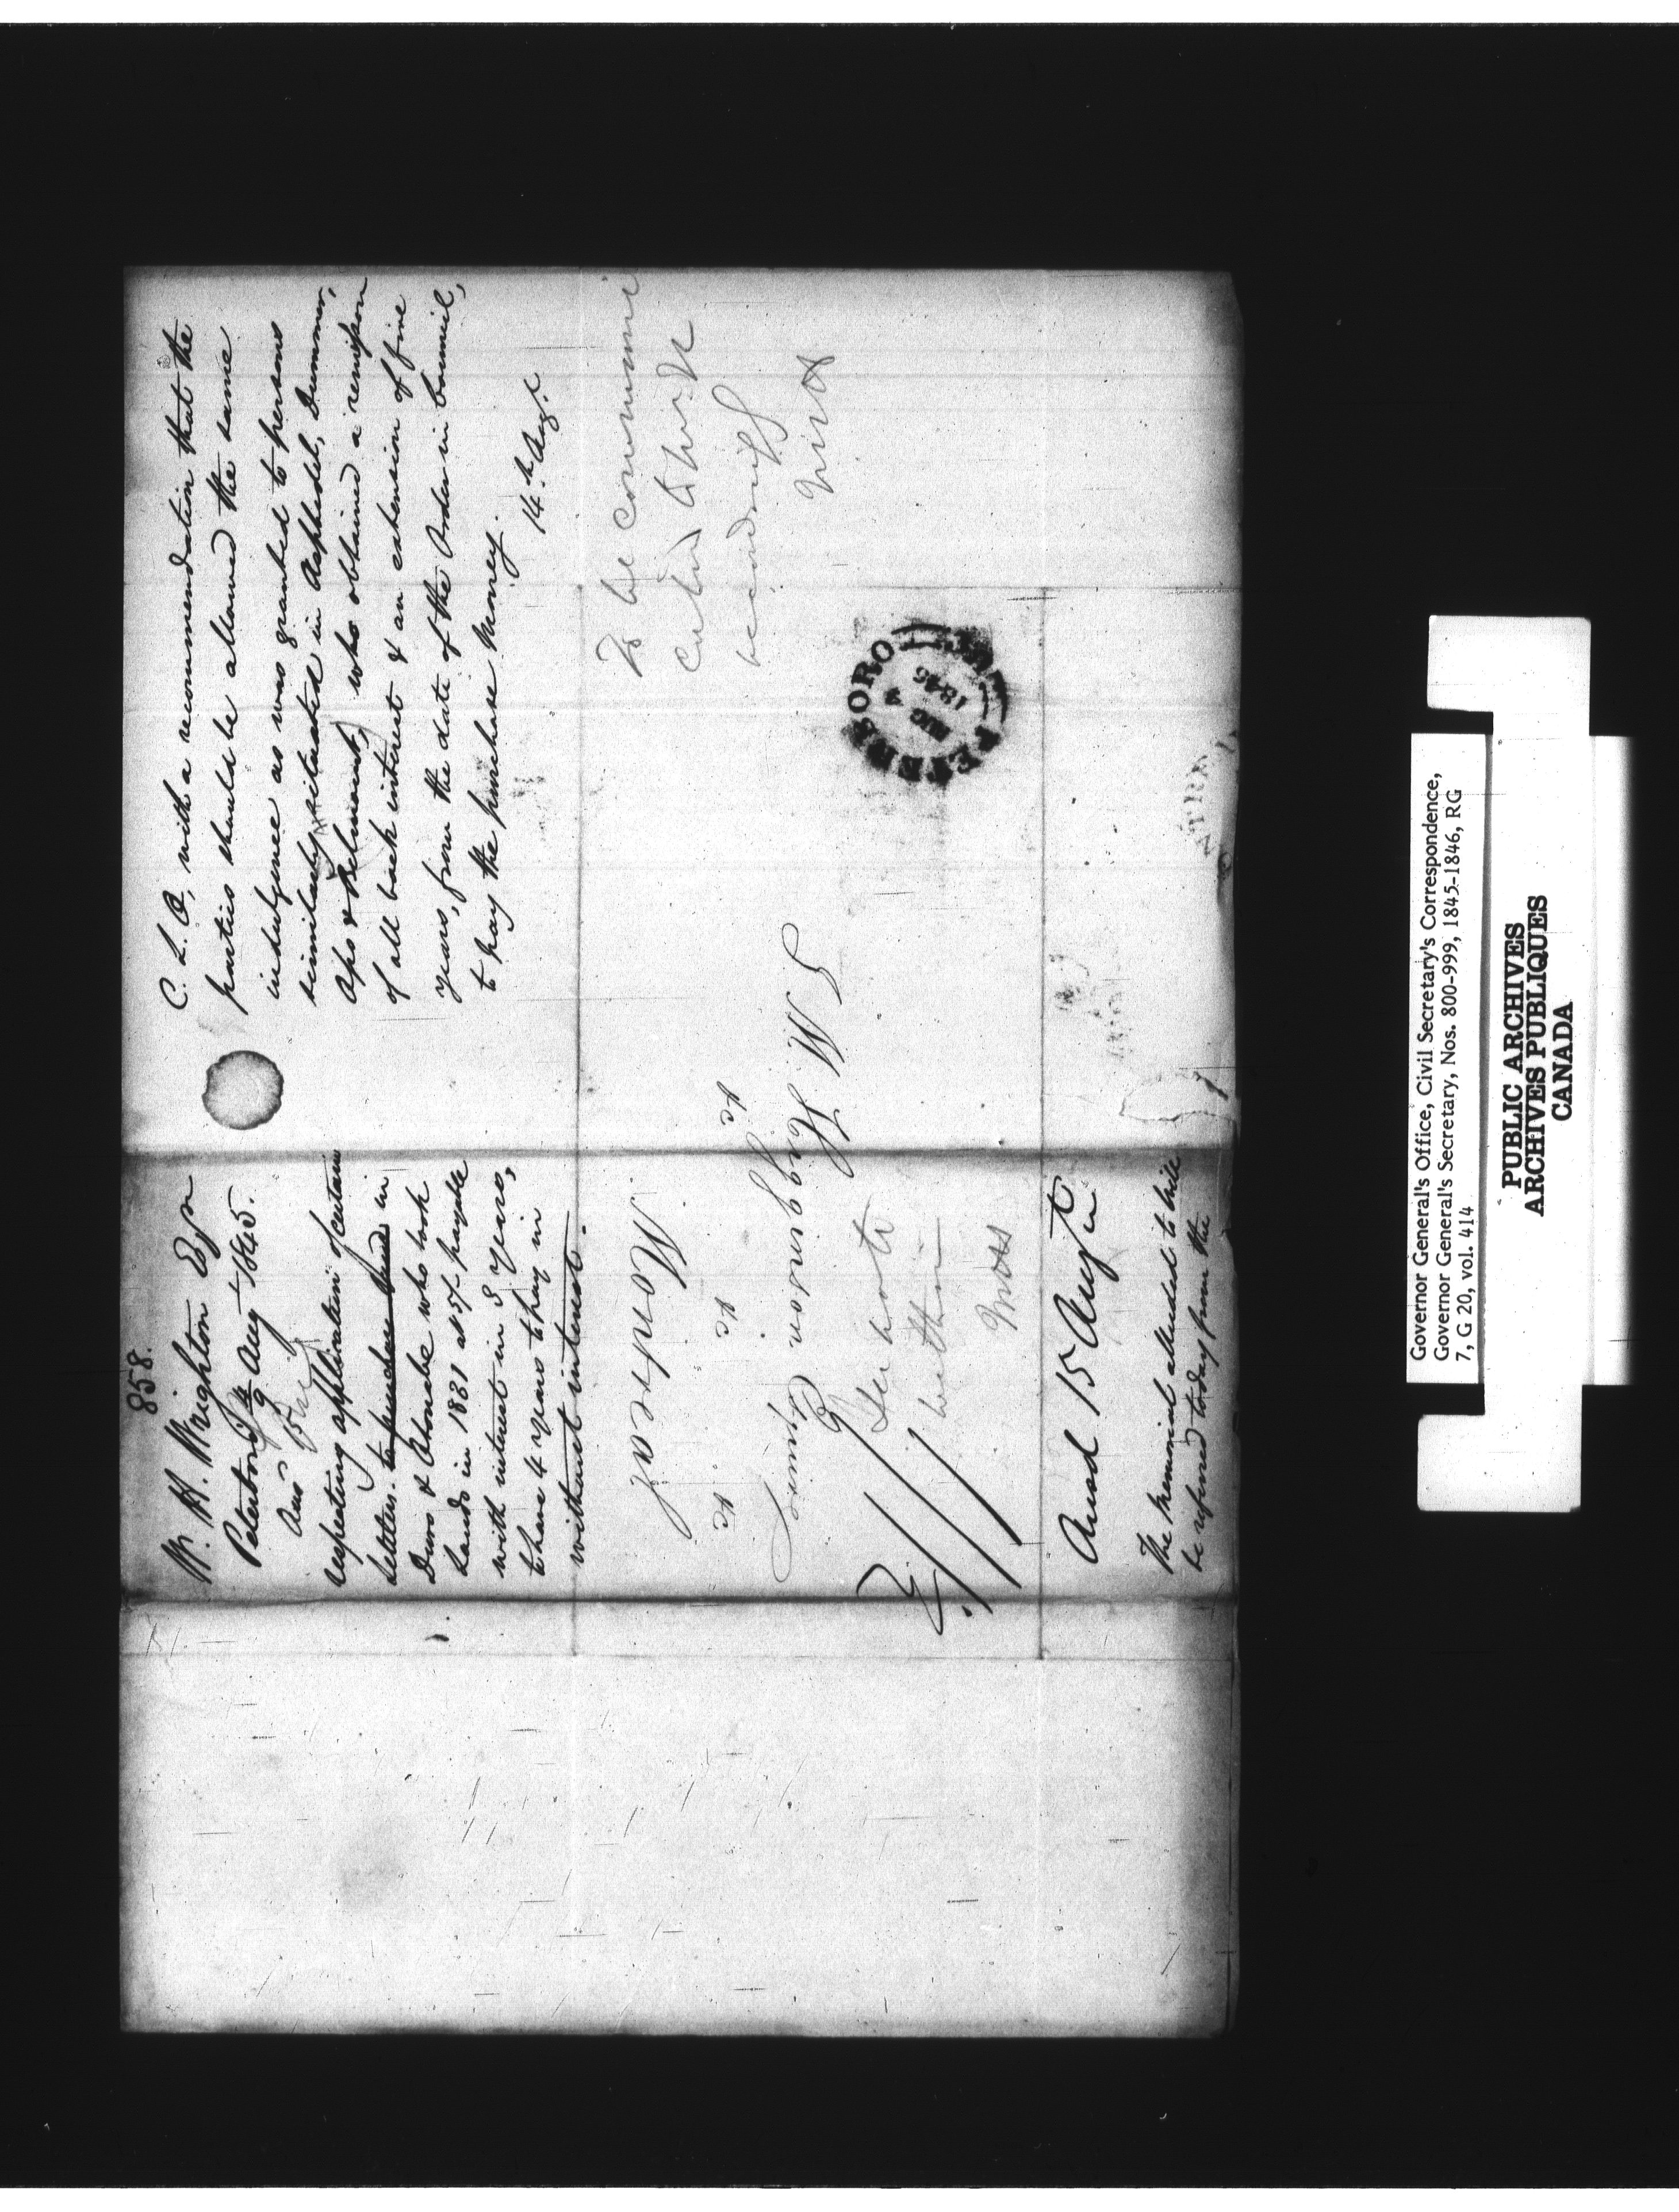 858.
W. H. Wrighton Esqr
Peterboro 9th Augt 1845.
Ansd 15th
respecting application of certain
settlers. to purchase land in
Duro & Asphodel who took
Lands in 1831 at 5/- payable
with interest in 3 years,
to have 4 years to pay in
without interest.
C. L. O. with a recommendation that the
parties should be allowed the same
indulgence as was granted to persons
similarly situated in Asphodel, Dummer,
Ops & Belmont, who obtained a remission
of all back interest & an extension of five
years, from the date of the Order in Council,
to pay the purchase money.
14th Augt
To be communi
cated
accordingly
Montreal
&c &c &c
J M Higginson
within
Ansd 15 Augt
The memorial alluded to will
be referred today from the
PETERBORO
AUG 4
1845
Governor General's Office, Civil Secretary's Correspondence,
Governor General's Secretary, Nos. 800-999, 1845-1846, RG
7, G 20, vol. 414
PUBLIC ARCHIVES
ARCHIVES PUBLIQUES
CANADA